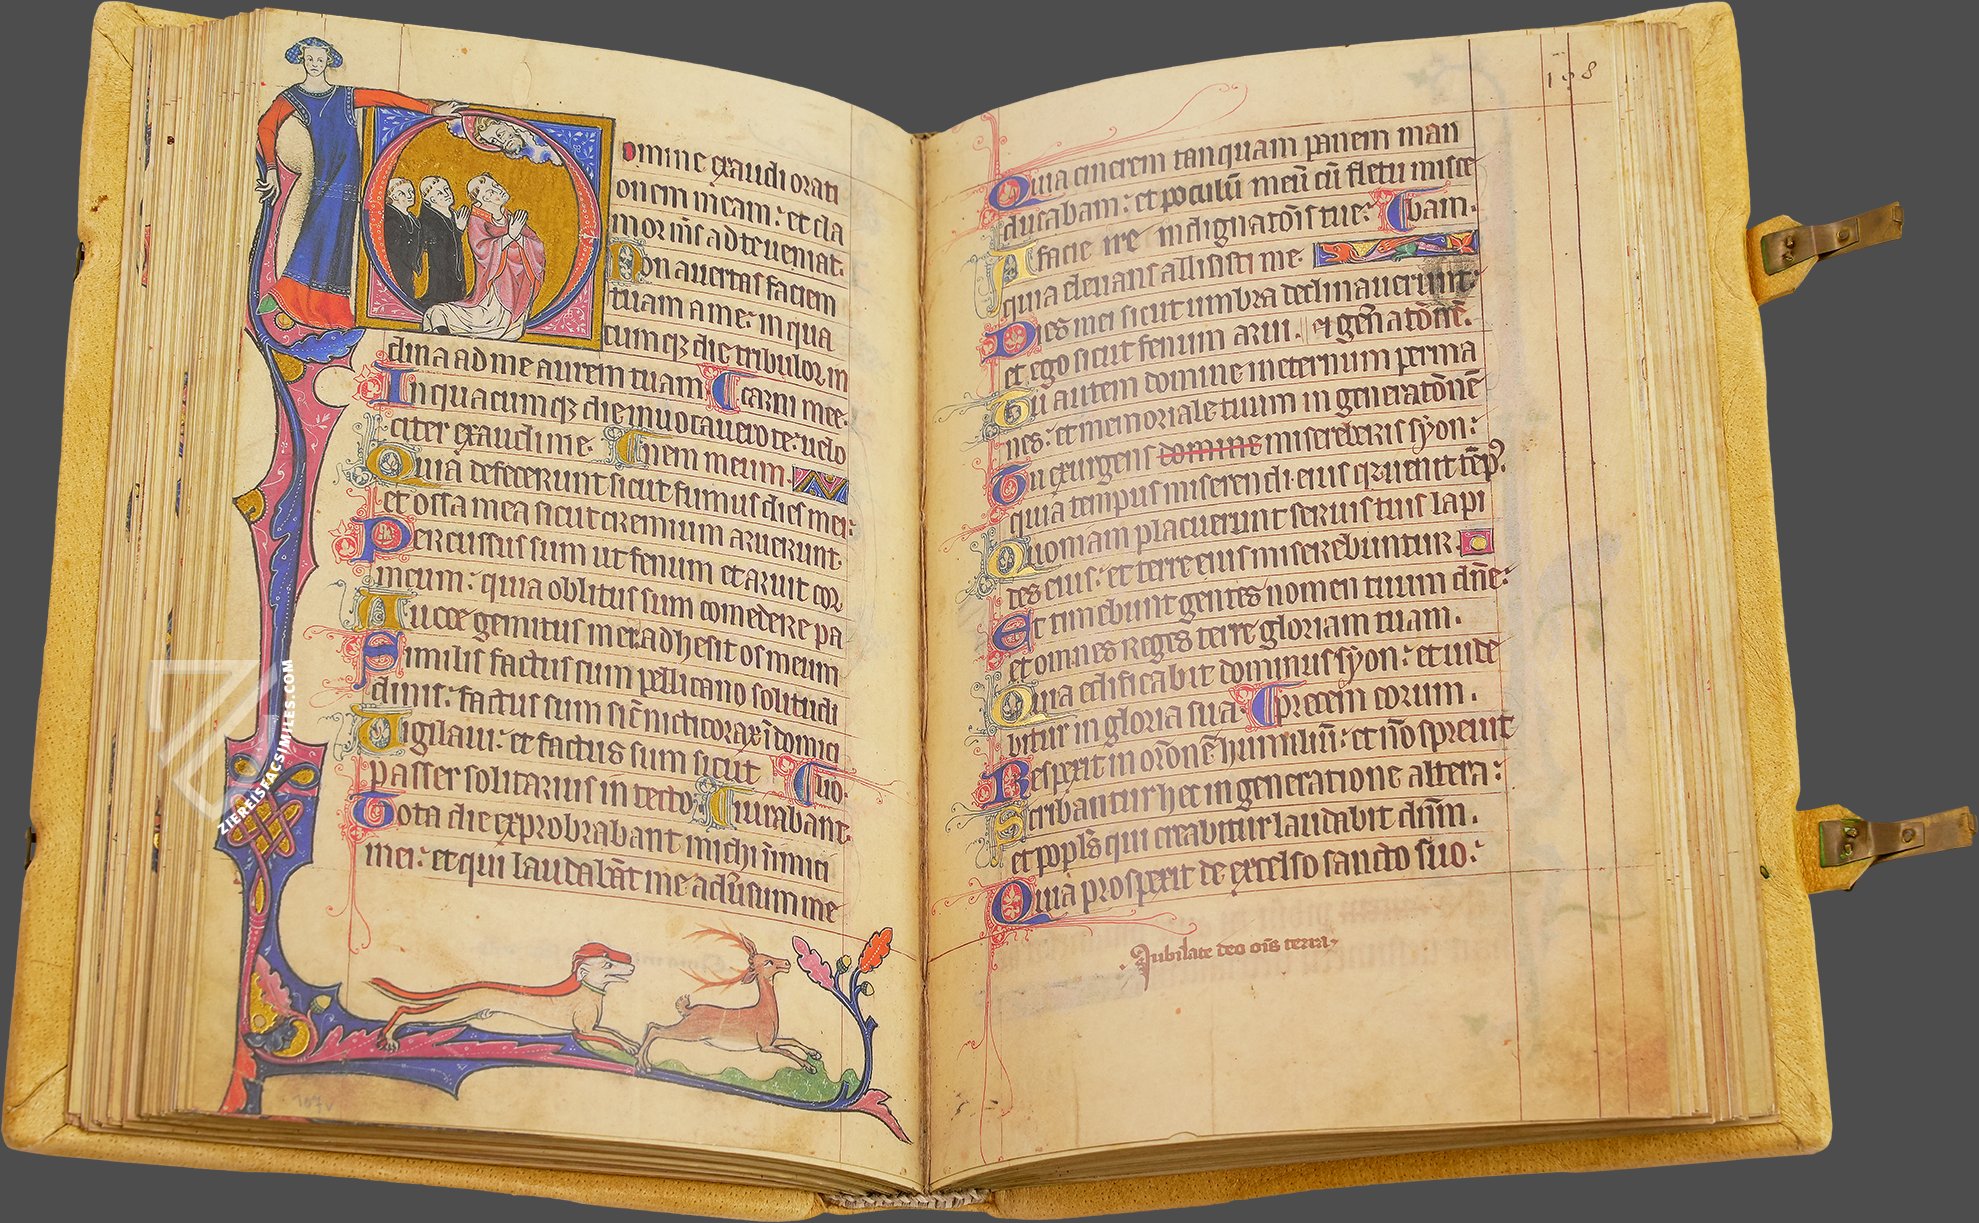 omine exaudi orati
onem meam: et cla
mor mis ad te ueniat.
Non auertas faciem
tuam a me: in qua
cumqz die tribulor in
clina ad me aurem tuam
In quacumqz die inuocauero te: uelo
citer exaudi me.
Quia defecerunt sicut fumus dies mei:
et ossa mea sicut cremium aruerunt.
Percussus sum ut fenum et aruit cor
meum: quia oblitus sum comedere pa
nem meum.
A uoce gemitus mei: adhesit os meum
carni mee.
Similis factus sum pellicano solitudi
dinis: factus sum sic nicticorax i domici
Uigilaui: et factus sum sicut
lio.
passer solitarius in tecto.
Tota die exprobrabant michi inimici
mei: et qui laudabat me aduersum me
iurabant.
108
Quia cinerem tanquam panem man
ducabam: et poculu meu cu fletu misce
bam.
A facie ire indignatois tue:
quia eleuans allisisti me.
Dies mei sicut umbra declinauerunt:
et ego sicut fenum arui.
Tu autem domine ineternum perma
nes: et memoriale tuum in generatone
et gen'atone.
Tu exurgens domine misereberis syon:
quia tempus miserendi eius q uenit tep'.
Quoniam placuerunt seruis tuis lapi
des eius: et terre eius miserebuntur.
Et timebunt gentes nomen tuum dne:
et omnes reges terre gloriam tuam.
Quia edificabit dominus syon: et uide
bitur in gloria sua.
Respexit in orone humiliu: et no spreuit
precem eorum.
Scribantur hec in generatione altera:
et popls qui creabitur laudabit dnm.
Quia prospexit de excelso sancto suo:
Jubilate deo ois terra.
107v
ZIEREISFACSIMILES.COM